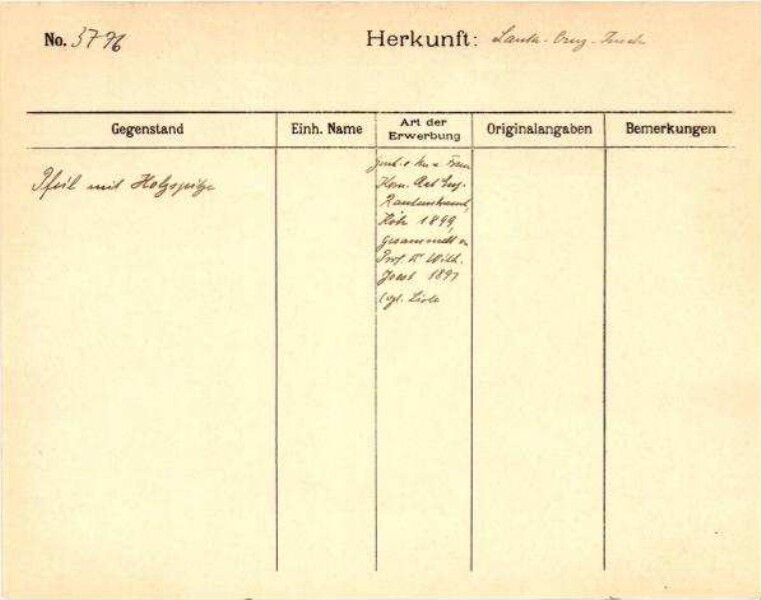 No. 3796 Herkunft: Santa-Cruz-Inseln
Gegenstand Einh. Name Art der Erwerbung Originalangaben Bemerkungen
Pfeil mit Holzspitze
Gesch. v. Frau
Kom. Rat Eug.
Rautenstrauch,
Köln 1899,
gesammelt v.
Prof. Dr Wilh.
Joest 1897
(vgl. Liste